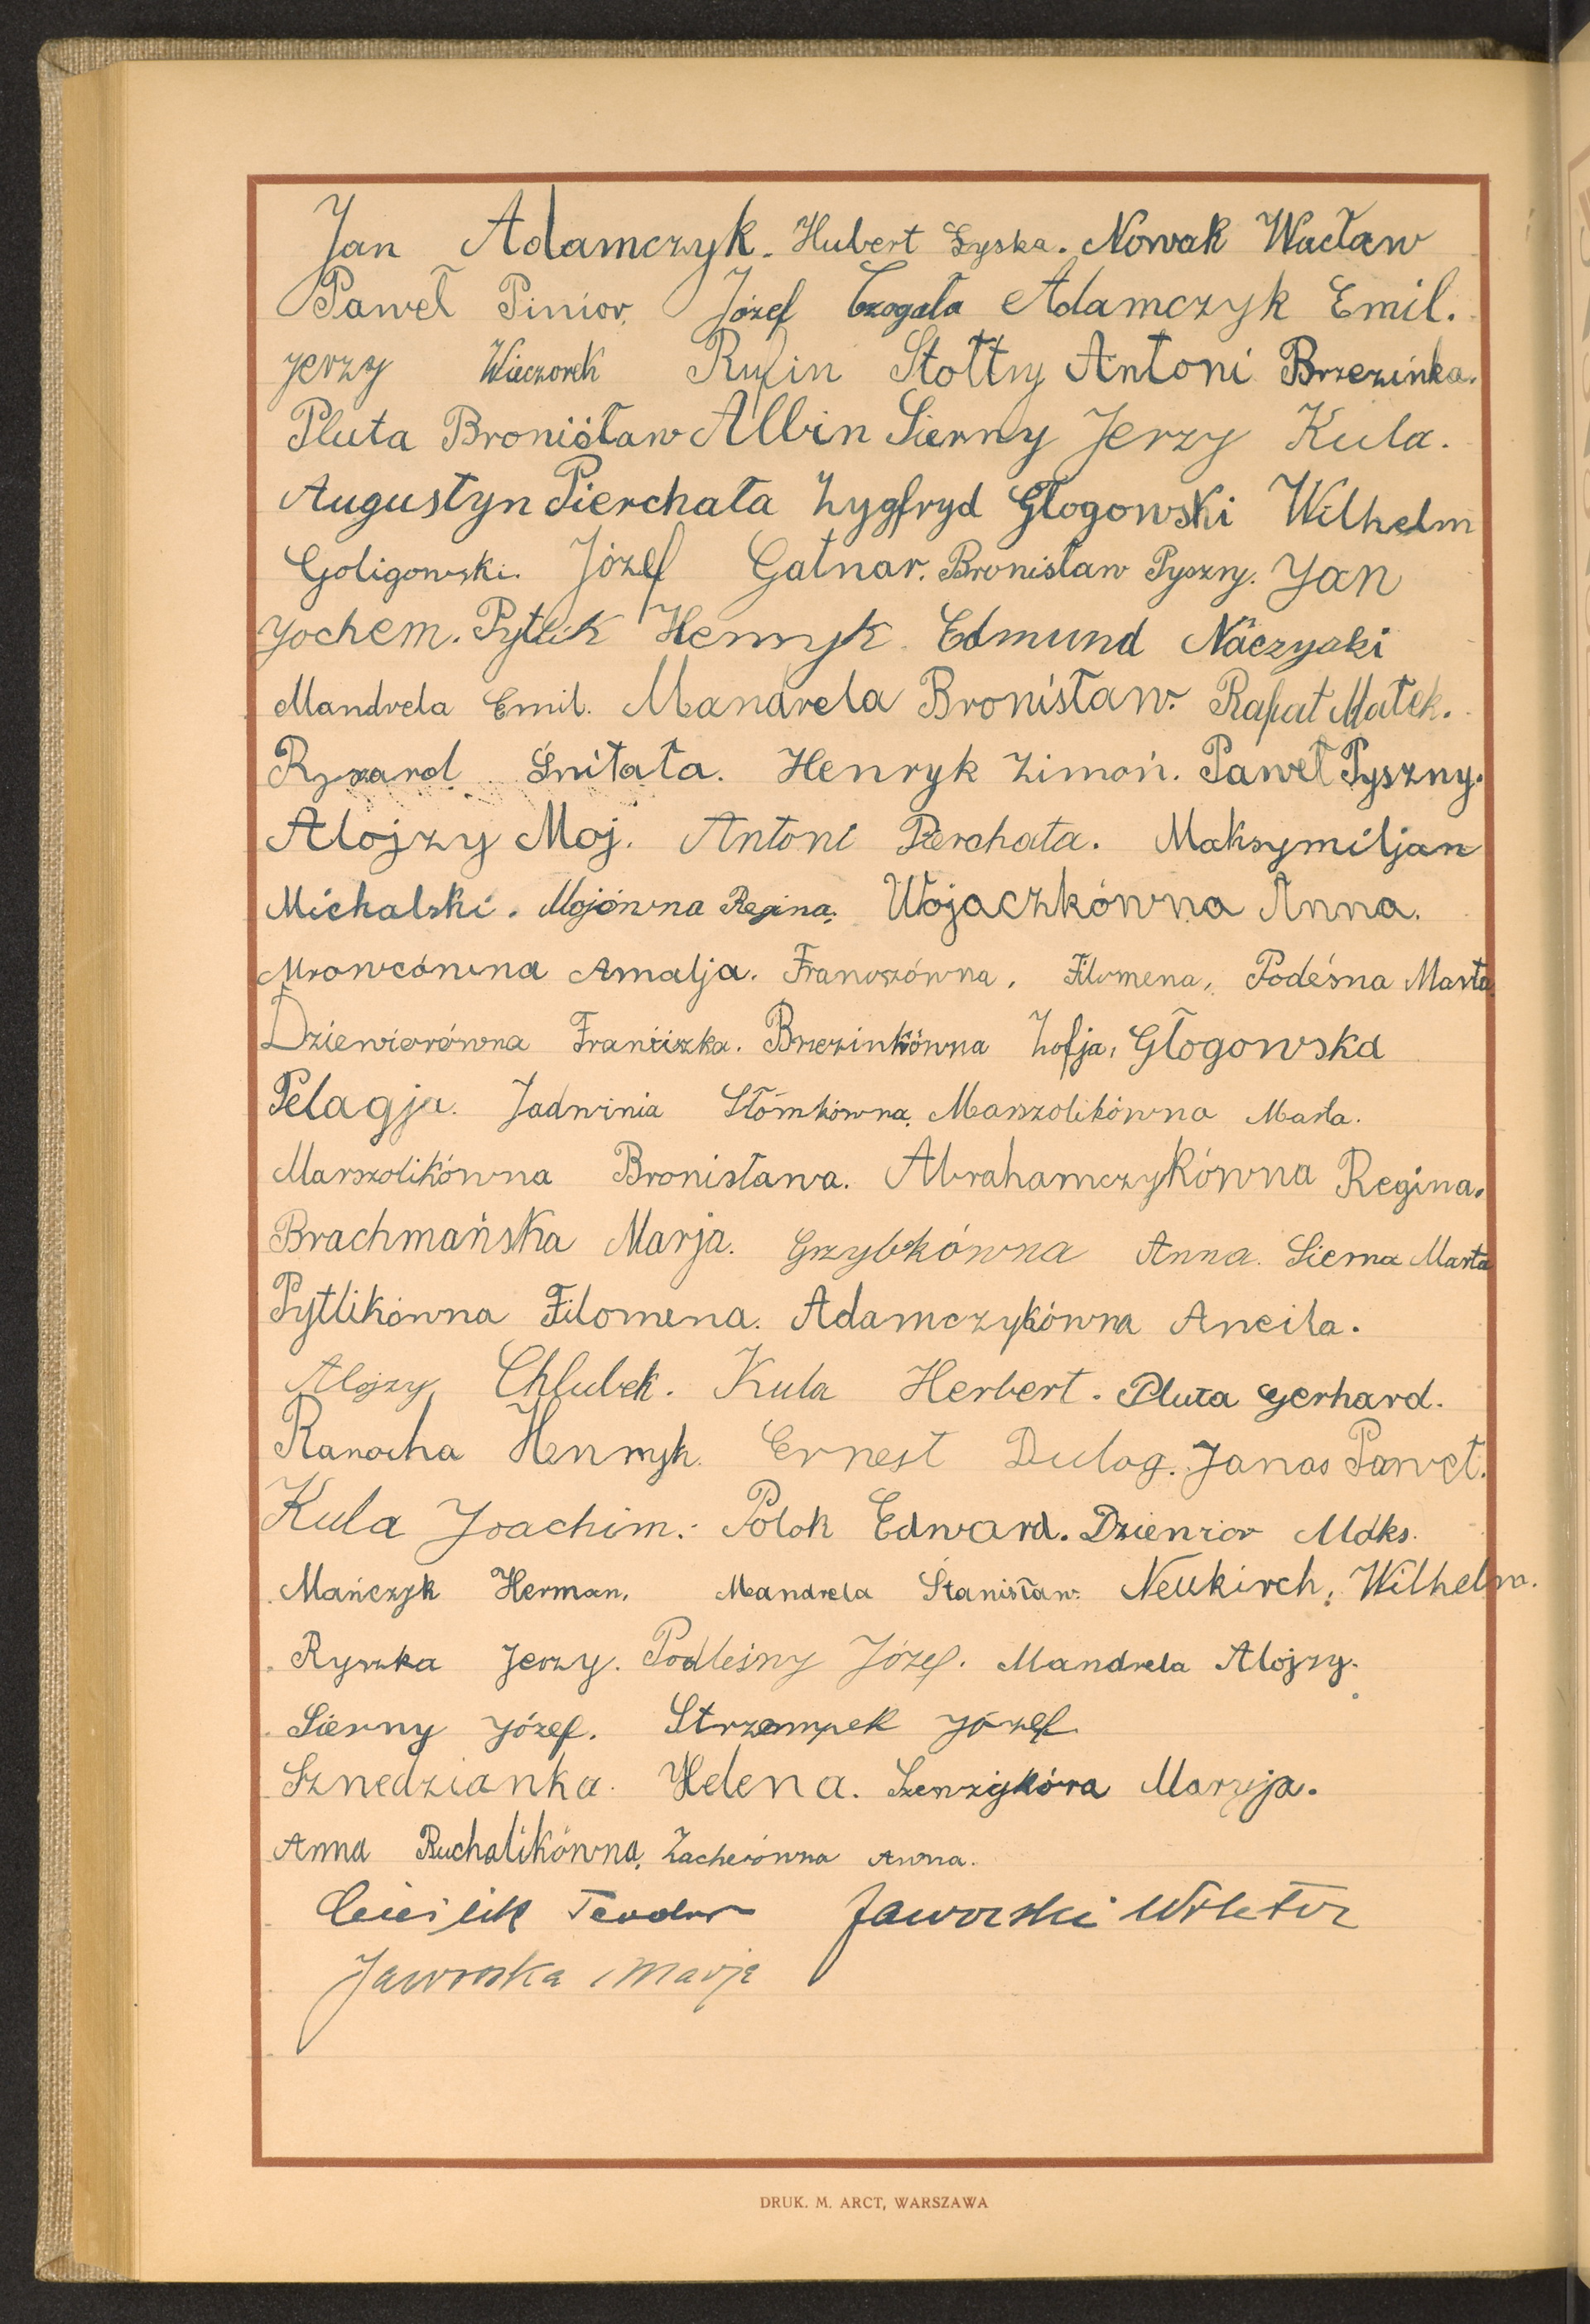 Jan Adamczyk. Hubert Łyska. Nowak Wacław
Paweł Pinior. Józef Czogała Adamczyk Emil.
Jerzy Wieczorek Rufin Stołtny Antoni Brzezinka.
Pluta Bronisław Albin Sierny Jerzy Kula.
Augustyn Pierchała Zygfryd Głogowski Wilhelm
Goligowski. Józef Gatnar. Bronisław Pyszny. Jan
Jochem. Pytlik Henryk. Edmund
Mandrela Emil. Mandrela Bronisław. Rafał Małek.
Ryszard Śnitała. Henryk Zimoń. Paweł Pyszny.
Alojzy Moj. Antoni Pierchała. Maksymiljan
Michalski. Mojówna Regina. Wojaczkówna Anna.
Mrowcówna Amalja. Franoszówna, Filomena, Podeśna Marta.
Dziewiorówna Franciszka. Brzezinkówna Zofja, Głogowska
Pelagja. Jadwinia Słómkówna, Marszolikówna Marta.
Marszolikówna Bronisława. Abrahamczykówna Regina.
Brachmańska Marja. Grzybkówna Anna. Sierna Marta
Pytlikówna Filomena. Adamczykówna Aneila.
Alojzy Chlubek. Kula Herbert. Pluta Gerhard.
Ranocha Henryk. Ernest Dulog. Janas Paweł.
Kula Joachim. Polok Edward. Dziewior Maks.
Mańczyk Herman. Mandrela Stanisław. Neukirch, Wilhelm.
Ryszka Jerzy. Podleśny Józef. Mandrela Alojzy.
Sierny Józef. Strzempek Józef.
Sznedzianka. Helena. Maryja.
Anna Ruchalikówna, Zacherówna Anna.
Cieślik Teodor Jaworski Wiktor
Jaworska Marja
DRUK. M. ARCT, WARSZAWA